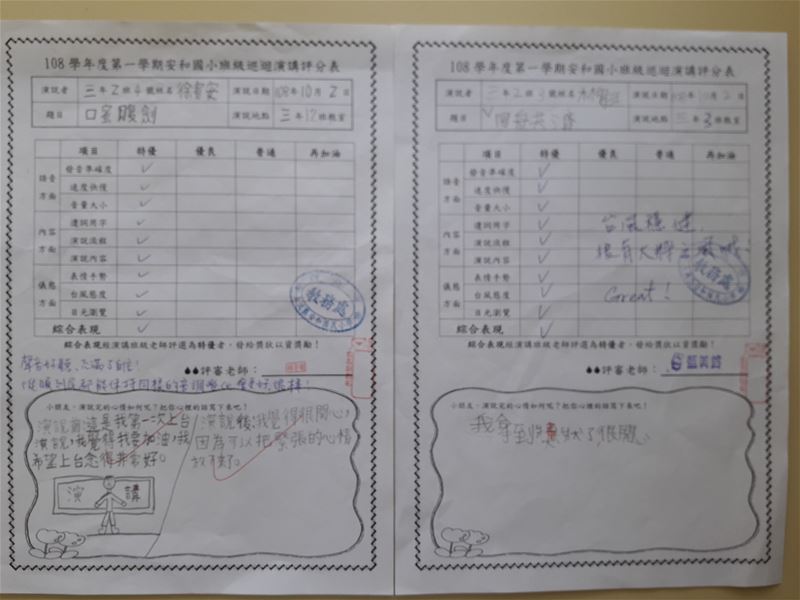 108 學年度第一學期安和國小班級巡迴演講評分表
演說者 三年2班4號姓名 徐 安 演說日期 108年10月2日
題目 口蜜腹劍 演說地點 三年12班教室
項目 特優 優良 普通 再加油
語音方面
發音準確度 ✓
速度快慢 ✓
音量大小 ✓
內容方面
遣詞用字 ✓
演說流程 ✓
演說內容 ✓
儀態方面
表情手勢 ✓
台風態度 ✓
目光瀏覽 ✓
綜合表現 ✓
教務處
綜合表現經演講班級老師評選為特優者,發給獎狀以資獎勵!
聲音好聽、
評審老師:
小朋友,演說完的心情如何呢?把你心裡的話寫下來吧!
演說前這是我第一次上台
演說,我覺得我要加油,我
希望上台念得非常好。
演說後我覺得很開心,
因為可以把緊張的心情
放下了。
演 講
108 學年度第一學期安和國小班級巡迴演講評分表
演說者 三年2班 號姓名 演說日期 108年10月2日
題目 演說地點 三年3班教室
項目 特優 優良 普通 再加油
語音方面
發音準確度 ✓
速度快慢 ✓
音量大小 ✓
內容方面
遣詞用字 ✓
演說流程 ✓
演說內容 ✓
儀態方面
表情手勢 ✓
台風態度 ✓
目光瀏覽 ✓
綜合表現 ✓
台風穩健,
很有大將之風哦。
Great!
教務處
綜合表現經演講班級老師評選為特優者,發給獎狀以資獎勵!
評審老師:
小朋友,演說完的心情如何呢?把你心裡的話寫下來吧!
我拿到獎狀了很開心。